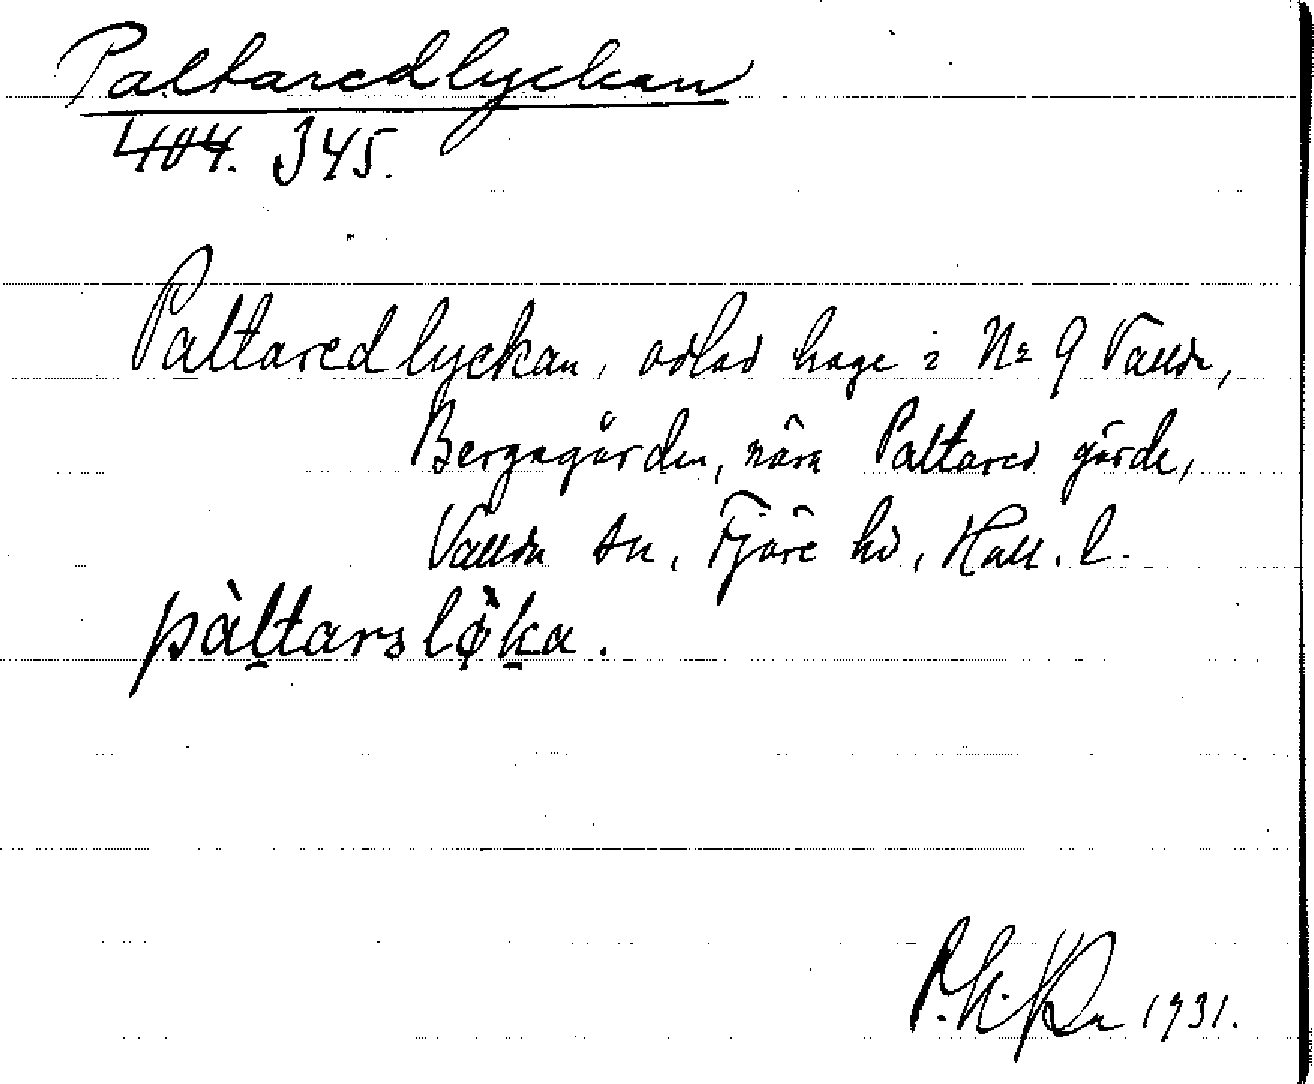 Paltaredlyckan
404. J45.
Paltaredlyckan, odlad hage i No 9 Vallda,
Bergagården, nära Paltared gärde,
Vallda sn, Fjäre hd, Hall. l.
pàltarslø̀ka.
1931.